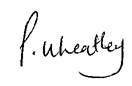 P. Wheatley